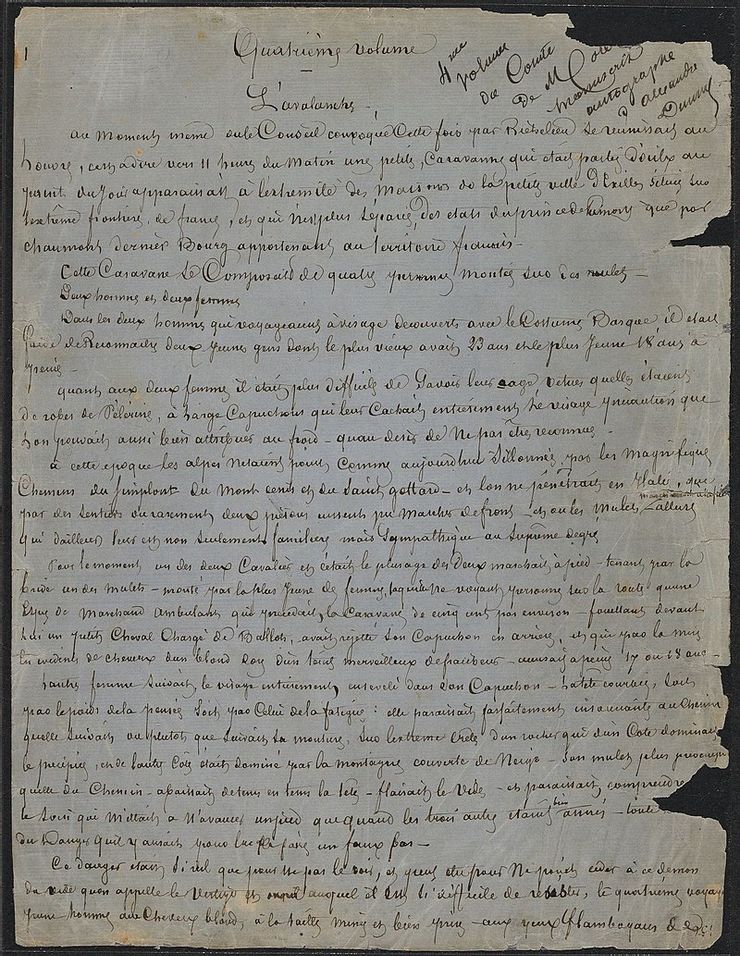 1
Quatrième volume
4me
volume
du Comte
De M
manuscrit
autographe
D'alexandre
Dumas
L'avalanche
au moment même oule Conseil convoqué Cette fois par Richelieu se reunissait au
Louvre, cest a dire vers 11 heures du Matin une petite Caravanne qui était partie D'oulx au
du jour apparaissait à l'extremité des Maisons de la petite ville D'Exilles située sur
l'extrême frontiere de france, et qui n'est plus séparée des etats du prince de piemont que par
chaumont dernier Bourg appartenant au territoire francais
Cette Caravane se Composait de quatre personnes montées sur des mulets
Deux hommes et deux femmes
Dans les deux hommes qui voyageaient à visage decouvert avec le Costume Basque, il etait
facile de Reconnaitre deux jeunes gens dont le plus vieux avait 23 ans et le plus jeune 18 ans à
peine
quant aux deux femmes il était plus difficile de savoir leur age vetues quelles étaient
de robes de Pélerine, à large Capuchons qui leur Cachait entièrement le visage precaution que
lon pouvait aussi bien attribuer au froid quau desir de ne pas être reconnues
à cette epoque les alpes netaient point comme aujourdhui sillonnées par les magnifique
Chemins du Simplont du Mont cenis et du saint gottard et lon ne pénétrait en italie que
par des sentiers ou rarement deux pietons eussent pu marcher de front et ou les mulets
qui dailleurs leur est non seulement familière mais sympathique au suprême degré
Pour le moment un des deux Cavaliers et c'était le plus age des deux marchait à pied tenant par la
bride un des mulets monté par la plus jeune des femmes, laquelle ne voyant personne sur la route quune
Espèce de Marchand ambulant qui precedait la Caravane de cinq cent pas environ fouettant devant
lui un petit Cheval Chargé de Ballots, avait rejetté son Capuchon en arrière, et qui par la mise
En evidence de cheveux dun blond doré dun teint merveilleux de fraicheur accusait à peine 17 ou 18 ans
Lautre femme suivait le visage entièrement enseveli dans son Capuchon la tete courbée, soit
par le poids de la pensée soit par Celui de la fatigue: elle paraissait parfaitement insouciante au Chemin
quelle suivait ou plutot que suivait sa monture, sur lextreme crete dun rocher qui dun Coté dominait
le precipice, et de lautre Côté était dominé par la montagne couverte de Neige son mulet plus préoccupé
quelle du Chemin abaissait de temps en tems la tete flairait le vide et paraissait comprendre
le soin qui mettait a n'avancer un pied que quand les trois autres étaient bien
du danger quil y aurait pour lui de faire un faux pas
Ce danger etait si réel que pour ne pas le voir, et peut etre pour Ne point ceder à ce démon
du vide quon appelle le Vertige et auquel il est si difficile de resister, le quatrième voya
jeune homme aux Cheveux blond, à la taille mince et bien prise aux yeux flamboyans